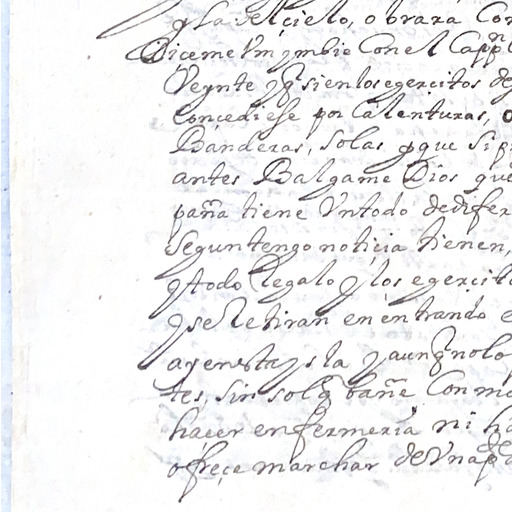 y la del cielo, obrara Con
Diceme Vm ymbio Con el Capp.n
Veynte y q̃ sien los egercitos de
Concediese por Calenturas, o
Banderas, solas y que si p
antes Balgame Dios que
paña tiene Vn todo de difer
segun tengo noticia tienen,
y todo Regalo y los egercito
y se Retiran en entrando e
ayen esta ysla y aunq̃ no lo
tes, sin solo q̃ bañe Con mo
haçer enfermeria ni ha
ofreçe marchar de Vna p.te